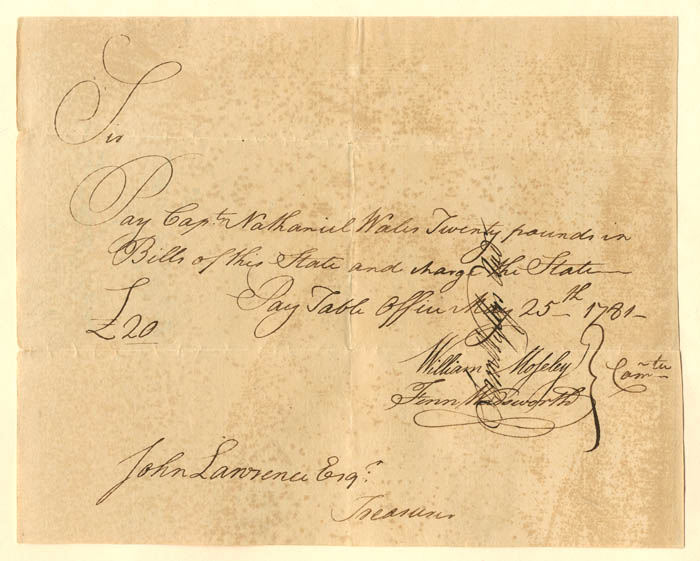 Sir
Pay Capt.n Nathaniel Wales Twenty pounds in
Bills of this State and charge the State
Pay Table Office May 25th 1781
£20
William Moseley
Fenn Wadsworth
Com.tee
John Lawrence Esq.r
Treasurer